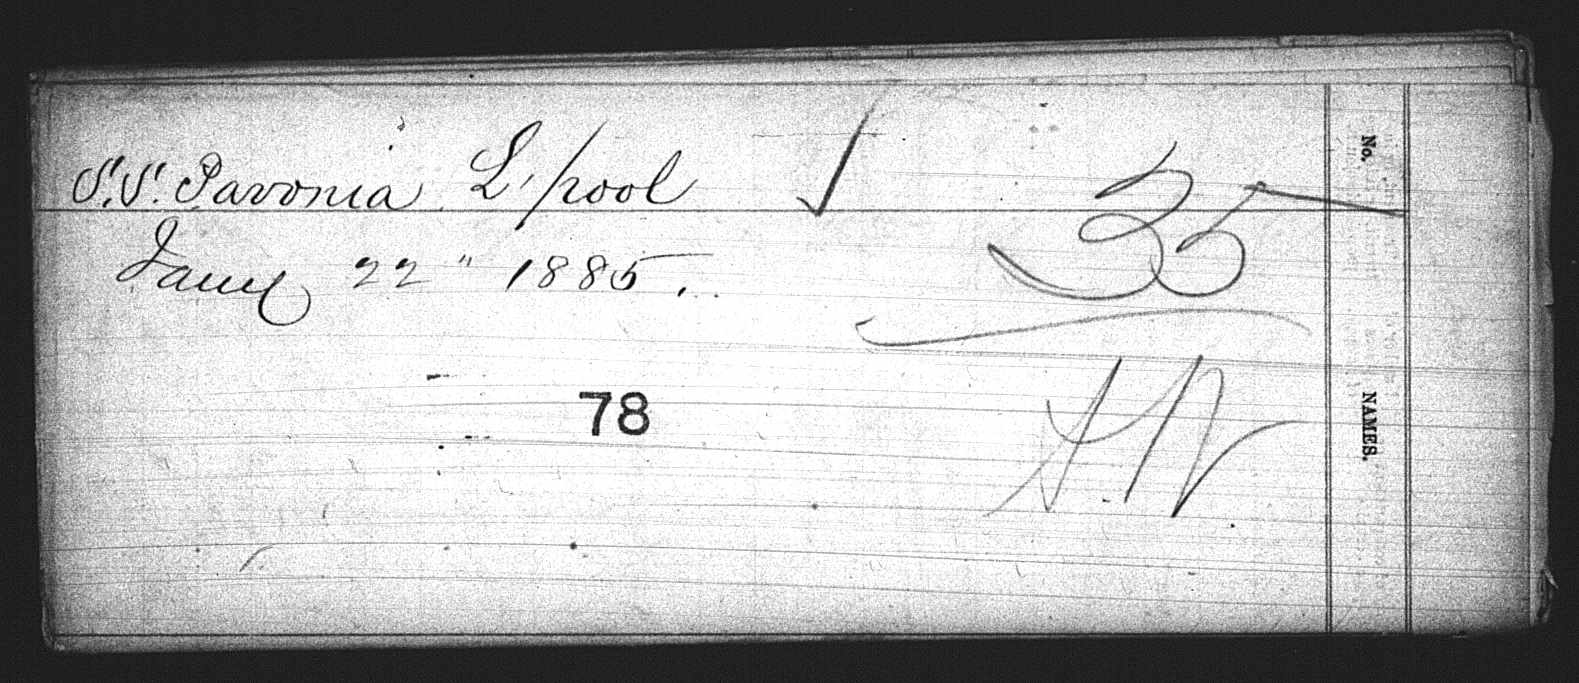 S.S. Pavonia L'pool
35
Jany 22" 1885.
78
No.
NAMES.